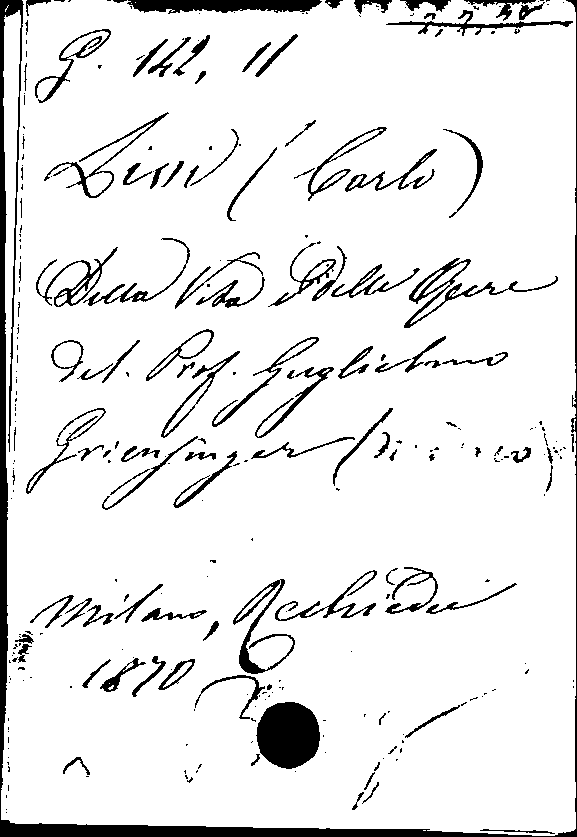 G. 142, 11
Livi (Carlo)
Della Vita e delle Opere
del. Prof. Guglielmo
Griensinger
Milano, Rechiedei
1870